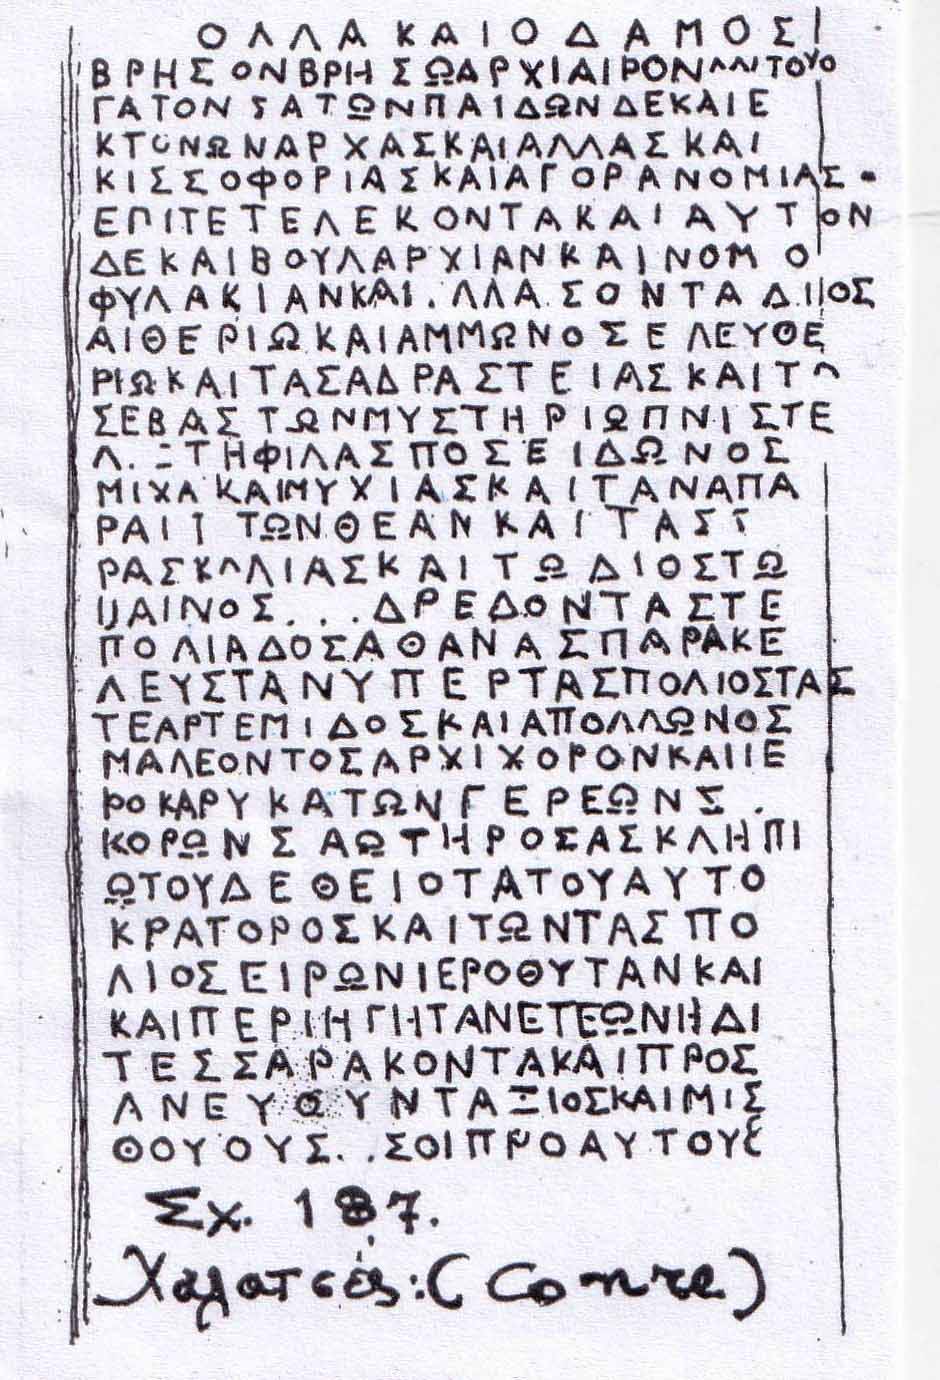 ΟΛΛΑΚΑΙΟΔΑΜΟΣΙ
ΒΡΗΣΟΝΒΡΗΣΩΑΡΧΙΑΙΡΟΝ
ΓΑΤΟΝΣΑΤΩΝΠΑΙΔΩΝΔΕΚΑΙΕ
ΚΤΟΝΩΝΑΡΧΑΣΚΑΙΑΛΛΑΣΚΑΙ
ΚΙΣΣΟΦΟΡΙΑΣΚΑΙΑΓΟΡΑΝΟΜΙΑΣ
ΕΠΙΤΕΤΕΛΕΚΟΝΤΑΚΑΙΑΥΤΟΝ
ΔΕΚΑΙΒΟΥΛΑΡΧΙΑΝΚΑΙΝΟΜΟ
ΦΥΛΑΚΙΑΝΚΑΙ.ΛΛΑΣΟΝΤΑΔΙΙΟΣ
ΑΙΘΕΡΙΩΚΑΙΑΜΜΩΝΟΣΕΛΕΥΘΕ
ΡΙΩΚΑΙΤΑΣΑΔΡΑΣΤΕΙΑΣΚΑΙΤ
ΣΕΒΑΣΤΩΝΜΥΣΤΗΡΙΩΠΝΙΣΤΕ
Λ.ΞΤΗΦΙΛΑΣΠΟΣΕΙΔΩΝΟΣ
ΜΙΧΑΚΑΙΜΥΧΙΑΣΚΑΙΤΑΝΑΠΑ
ΡΑΙΤΤΩΝΘΕΑΝΚΑΙΤΑΣΤ
ΡΑΣΚΛΛΙΑΣΚΑΙΤΩΔΙΟΣΤΩ
ΙΙΑΙΝΟΣ...ΔΡΕΔΟΝΤΑΣΤΕ
ΠΟΛΙΑΔΟΣΑΘΑΝΑΣΠΑΡΑΚΕ
ΛΕΥΣΤΑΝΥΠΕΡΤΑΣΠΟΛΙΟΣΤΑΣ
ΤΕΑΡΤΕΜΙΔΟΣΚΑΙΑΠΟΛΛΩΝΟΣ
ΜΑΛΕΟΝΤΟΣΑΡΧΙΧΟΡΟΝΚΑΙΙΕ
ΡΟΚΑΡΥΚΑΤΩΝΓΕΡΕΩΝΣ.
ΚΟΡΩΝΣΑΩΤΗΡΟΣΑΣΚΛΗΠΙ
ΩΤΟΥΔΕΘΕΙΟΤΑΤΟΥΑΥΤΟ
ΚΡΑΤΟΡΟΣΚΑΙΤΩΝΤΑΣΠΟ
ΛΙΟΣΕΙΡΩΝΙΕΡΟΘΥΤΑΝΚΑΙ
ΚΑΙΠΕΡΙΗΓΗΤΑΝΕΤΕΩΝΗΔΙ
ΤΕΣΣΑΡΑΚΟΝΤΑΚΑΙΠΡΟΣ
ΑΝΕΥΘΥΝΤΑΞΙΟΣΚΑΙΜΙΣ
ΘΟΥΟΥΣ..ΣΟΙΠΡΟΑΥΤΟΥΣ
Σχ. 187.
Χαλατσές: (Conze)